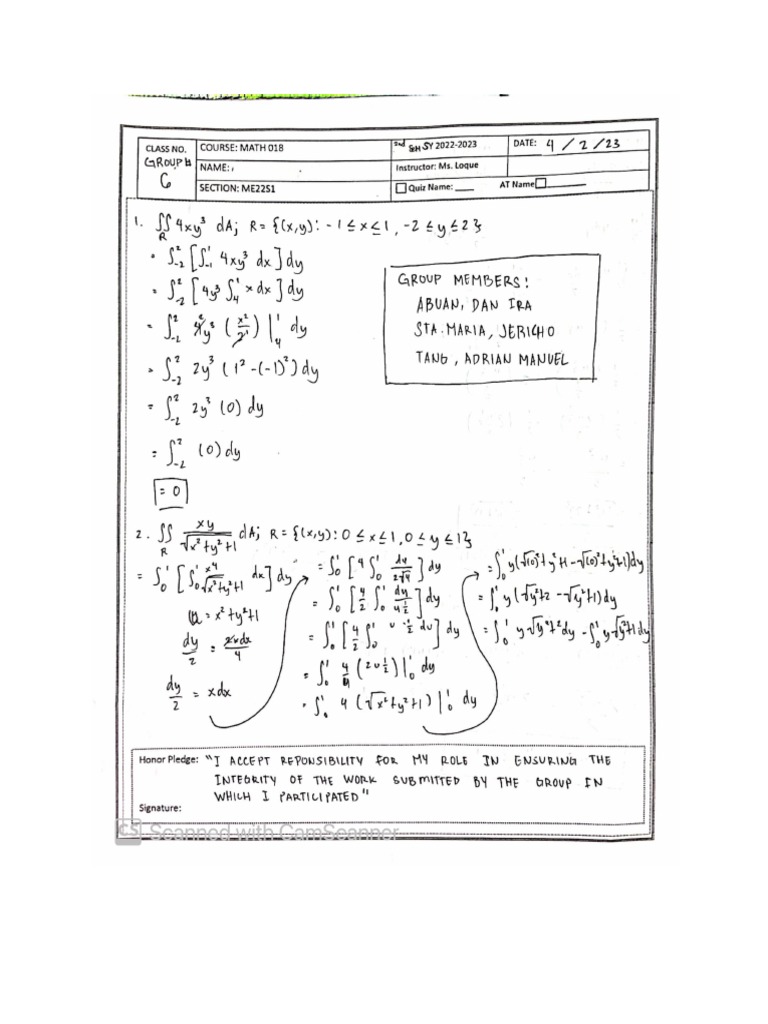 CLASS NO.
GROUP #
6
COURSE: MATH 018
NAME:
SECTION: ME22S1
2nd SEM SY 2022-2023
Instructor: Ms. Loque
Quiz Name: ____
DATE: 4 / 2 / 23
AT Name ____
1. ∬_R 4xy³ dA; R = {(x,y): -1 ≤ x ≤ 1, -2 ≤ y ≤ 2}
= ∫_-2^2 [∫_-1^1 4xy³ dx] dy
= ∫_-2^2 [4y³ ∫_4^1 x dx] dy
= ∫_-2^2 4y³ (x²/2) |_4^1 dy
= ∫_-2^2 2y³ (1² - (-1)²) dy
= ∫_-2^2 2y³ (0) dy
= ∫_-2^2 (0) dy
= 0
GROUP MEMBERS:
ABUAN, DAN IRA
STA. MARIA, JERICHO
TANG, ADRIAN MANUEL
2. ∬_R xy/√x²+y²+1 dA; R = {(x,y): 0 ≤ x ≤ 1, 0 ≤ y ≤ 1}
= ∫_0^1 [∫_0^1 x4/√x²+y²+1 dx] dy
u = x²+y²+1
dy/2 = 2xdx/4
dy/2 = xdx
= ∫_0^1 [4 ∫_0^1 du/2√4] dy
= ∫_0^1 [4/2 ∫_0^1 dy/u ½] dy
= ∫_0^1 [4/2 ∫_0^1 u -½ du] dy
= ∫_0^1 4/4 (2u ½) |_0^1 dy
= ∫_0^1 4 (√x²+y²+1) |_0^1 dy
= ∫_0^1 y(√(0)²+y²+1 - √(0)²+y²+1) dy
= ∫_0^1 y (√y²+2 - √y²+1) dy
= ∫_0^1 y √y²+2 dy - ∫_0^1 y √y²+1 dy
Honor Pledge: "I ACCEPT REPONSIBILITY FOR MY ROLE IN ENSURING THE
INTEGRITY OF THE WORK SUBMITTED BY THE GROUP IN
WHICH I PARTICIPATED"
Signature:
CS Scanned with CamScanner